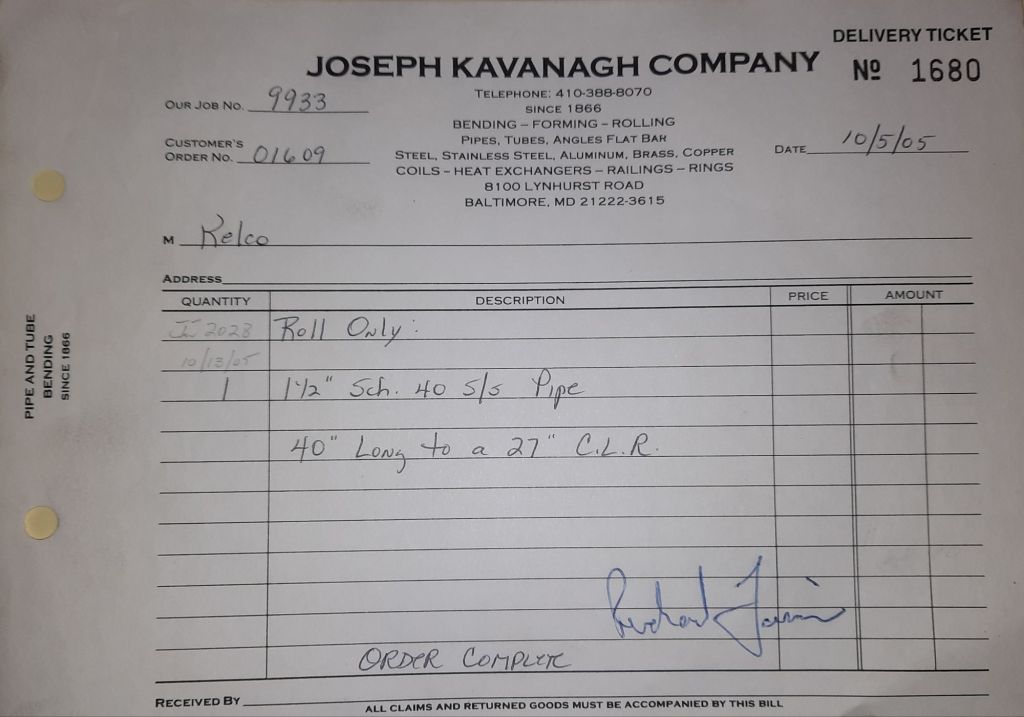 DELIVERY TICKET
JOSEPH KAVANAGH COMPANY
Nº 1680
TELEPHONE: 410-388-8070
OUR JOB NO. 9933
SINCE 1866
BENDING – FORMING – ROLLING
PIPES, TUBES, ANGLES FLAT BAR
CUSTOMER'S
ORDER NO. 01609
STEEL, STAINLESS STEEL, ALUMINUM, BRASS, COPPER
DATE 10/5/05
COILS – HEAT EXCHANGERS – RAILINGS – RINGS
8100 LYNHURST ROAD
BALTIMORE, MD 21222-3615
M Kelco
ADDRESS
QUANTITY DESCRIPTION PRICE AMOUNT
2028 Roll Only:
10/13/05
1 1 1/2" Sch. 40 S/S Pipe
40" Long to a 27" C.L.R.
Richard
ORDER COMPLETE
RECEIVED BY
ALL CLAIMS AND RETURNED GOODS MUST BE ACCOMPANIED BY THIS BILL
PIPE AND TUBE
BENDING
SINCE 1866